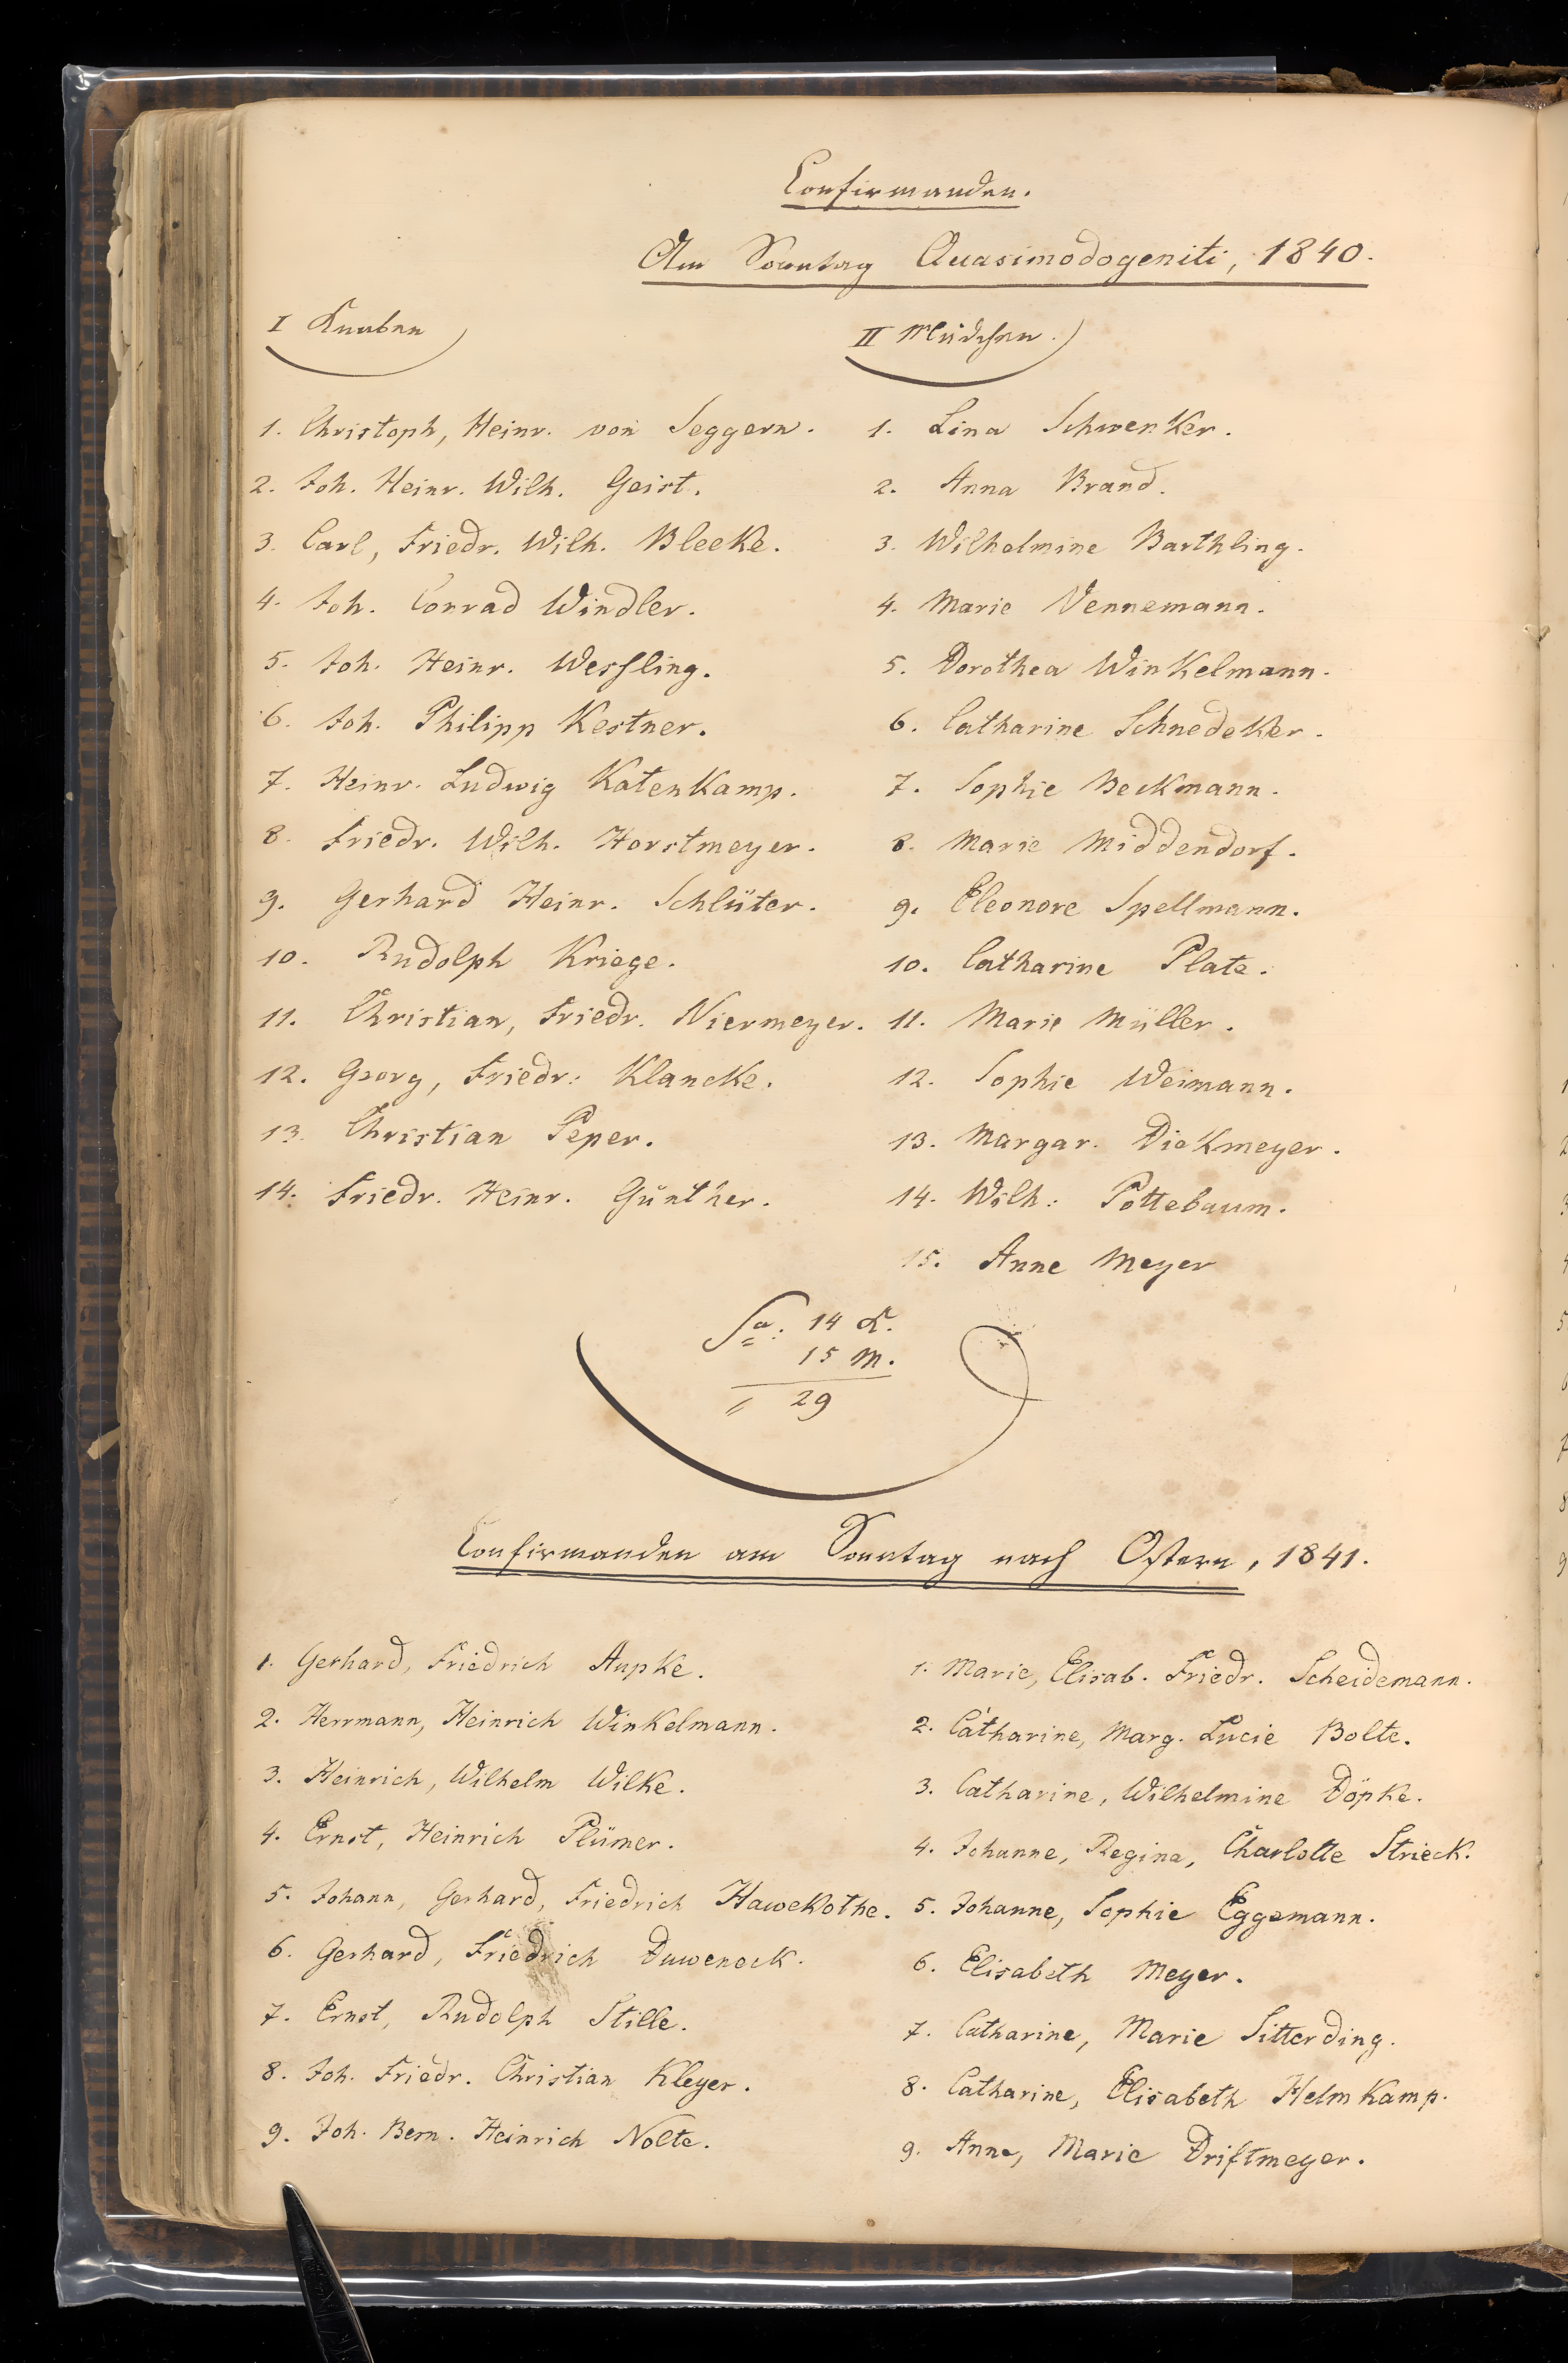 Confirmanden.
Am Sonntag Quasimodogeniti, 1840.
I Knaben
1. Christoph, Heinr. von Seggern.
2. Joh. Heinr. Wilh. Geist.
3. Carl, Friedr. Wilh. Bleeke.
4. Joh. Conrad Windler.
5. Joh. Heinr. Wessling.
6. Joh. Philipp Kestner.
7. Heinr. Ludwig Katenkamp.
8. Friedr. Wilh. Horstmeyer.
9. Gerhard Heinr. Schlüter.
10. Rudolph Kriege.
11. Christian, Friedr. Niermeyer.
12. Georg, Friedr: Klancke.
13. Christian Peper.
14. Friedr. Heinr. Günther.
II Mädchen.
1. Lina Schwenker.
2. Anna Brand.
3. Wilhelmine Barthling.
4. Marie Vennemann.
5. Dorothea Winkelmann.
6. Catharine Schnedeker.
7. Sophie Beckmann.
8. Marie Middendorf.
9. Eleonore Spellmann.
10. Catharine Plate.
11. Marie Müller.
12. Sophie Weimann.
13. Margar. Diekmeyer.
14. Wilh: Pottebaum.
15. Anne Meyer
Sa: 14 K.
15 M.
29
Confirmanden am Sonntag nach Ostern, 1841.
1. Gerhard, Friedrich Aupke.
2. Herrmann, Heinrich Winkelmann.
3. Heinrich, Wilhelm Wilke.
4. Ernst, Heinrich Plümer.
5. Johann, Gerhard, Friedrich Hawekothe.
6. Gerhard, Friedrich Duweneck.
7. Ernst, Rudolph Stille.
8. Joh. Friedr. Christian Kleyer.
9. Joh. Bern. Heinrich Nolte.
1. Marie, Elisab. Friedr. Scheidemann.
2. Catharine, Marg. Lucie Bolte.
3. Catharine, Wilhelmine Döpke.
4. Johanne, Regina, Charlotte Strieck.
5. Johanne, Sophie Eggemann.
6. Elisabeth Meyer.
7. Catharine, Marie Sitterding.
8. Catharine, Elisabeth Helmkamp.
9. Anne, Marie Driftmeyer.